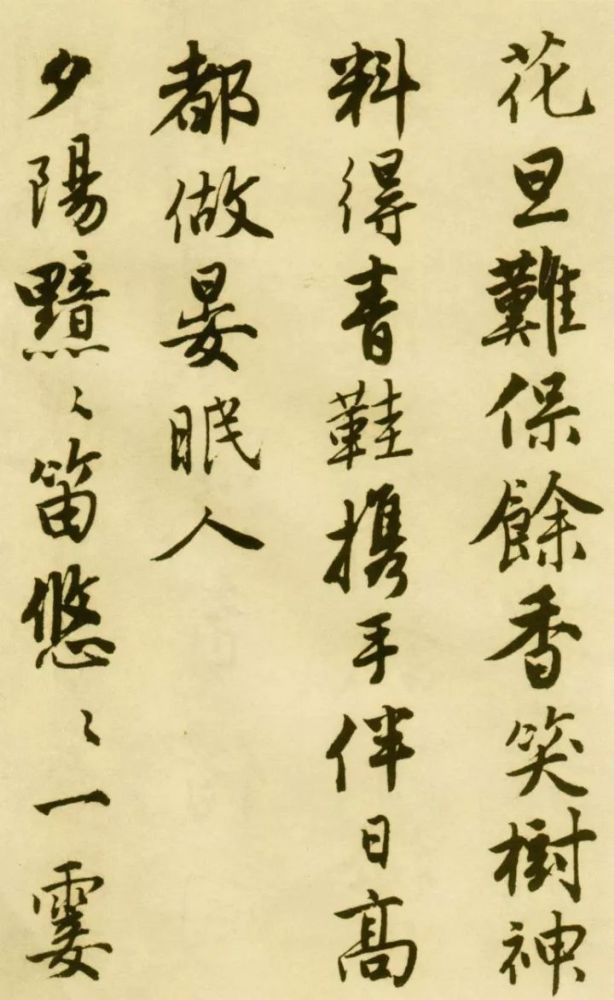 花旦難保餘香笑樹神
料得青鞋携手伴日髙
都做晏眠人
夕陽黯〻笛悠〻一霎